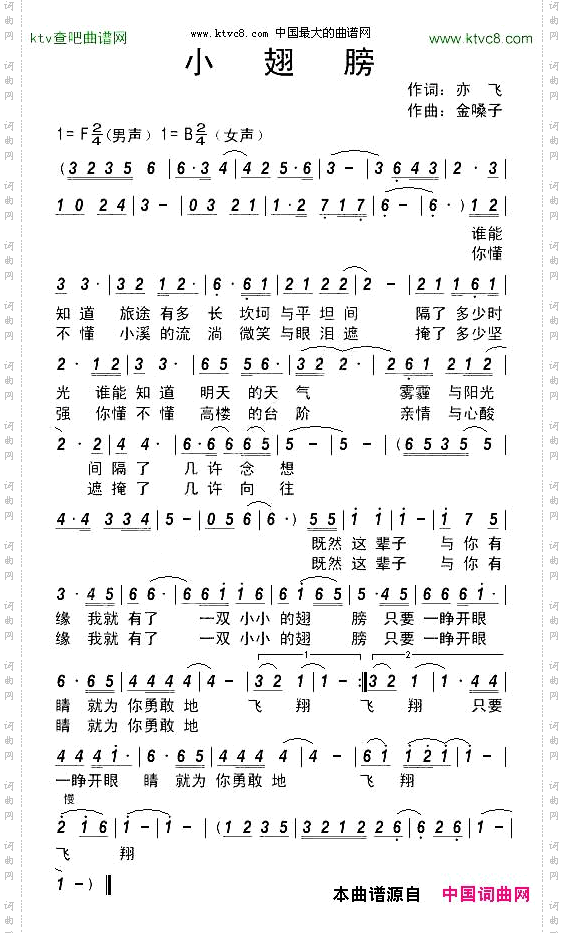 www.ktvc8.com 中国最大的曲谱网
ktv查吧曲谱网
www.ktvc8.com
小 翅 膀
作词：亦 飞
作曲：金嗓子
1=F 2/4 (男声) 1=B 2/4 (女声)
(3 2 3 5 6 | 6·3 4 | 4 2 5·6 | 3 - | 3 6 4 3 | 2·3 |
1 0 2 4 | 3 - | 0 3 2 1 | 1·2 7 1 7 | 6 - | 6·) 1 2 |
谁能
你懂
3 3· | 3 2 1 2· | 6·6 1 | 2 1 2 2 | 2 - | 2 2 1 1 6 1 |
知 道 旅途 有 多 长 坎坷 与 平 坦 间 隔了 多少时
不 懂 小溪 的 流 淌 微笑 与 眼 泪 遮 掩了 多少坚
2·1 2 | 3 3· | 5 5 5 6· | 3 2 2 - | 2 6 1 | 2 1 2 |
光 谁能 知 道 明天 的 天 气 雾霾 与阳光
强 你懂 不 懂 高楼 的 台 阶 亲情 与心酸
2·2 | 4 4· | 6·6 6 6 5 | 5 - | 5 - | (6 5 3 5 |
间 隔 了 几 许 念 想
遮 掩 了 几 许 向 往
4·4 3 3 4 | 5 - | 0 5 6 6 | 6·) 5 5 | 1 1 | 1 - | 1 7 5 |
既然 这 辈子 与 你 有
既然 这 辈子 与 你 有
3·4 5 | 6 6· | 6 6 1 1 6 | 6 1 6 5 | 5·4 5 | 6 6 6·1 |
缘 我就 有了 一双 小小 的翅 膀 只要 一睁开眼
缘 我就 有了 一双 小小 的翅 膀 只要 一睁开眼
1 2
6·6 5 | 4 4 4 4 | 4 - | 3 2 1 | 1 - :| 3 2 1 | 1·4 4 |
睛 就为 你勇敢地 飞 翔 飞 翔 只要
睛 就为 你勇敢地
4 4 4 1· | 6·6 5 | 4 4 4 4 | 4 - | 6 1 1 2 1 | 1 - |
一睁开眼 睛 就为 你勇敢 地 飞 翔
慢
2 1 6 | 1 - | 1 - | (1 2 3 5 | 3 2 1 2 2 6 | 6 2 6 | 6 - |
飞 翔
1 -) ‖
本曲谱源自 中国词曲网
词曲网
词曲网